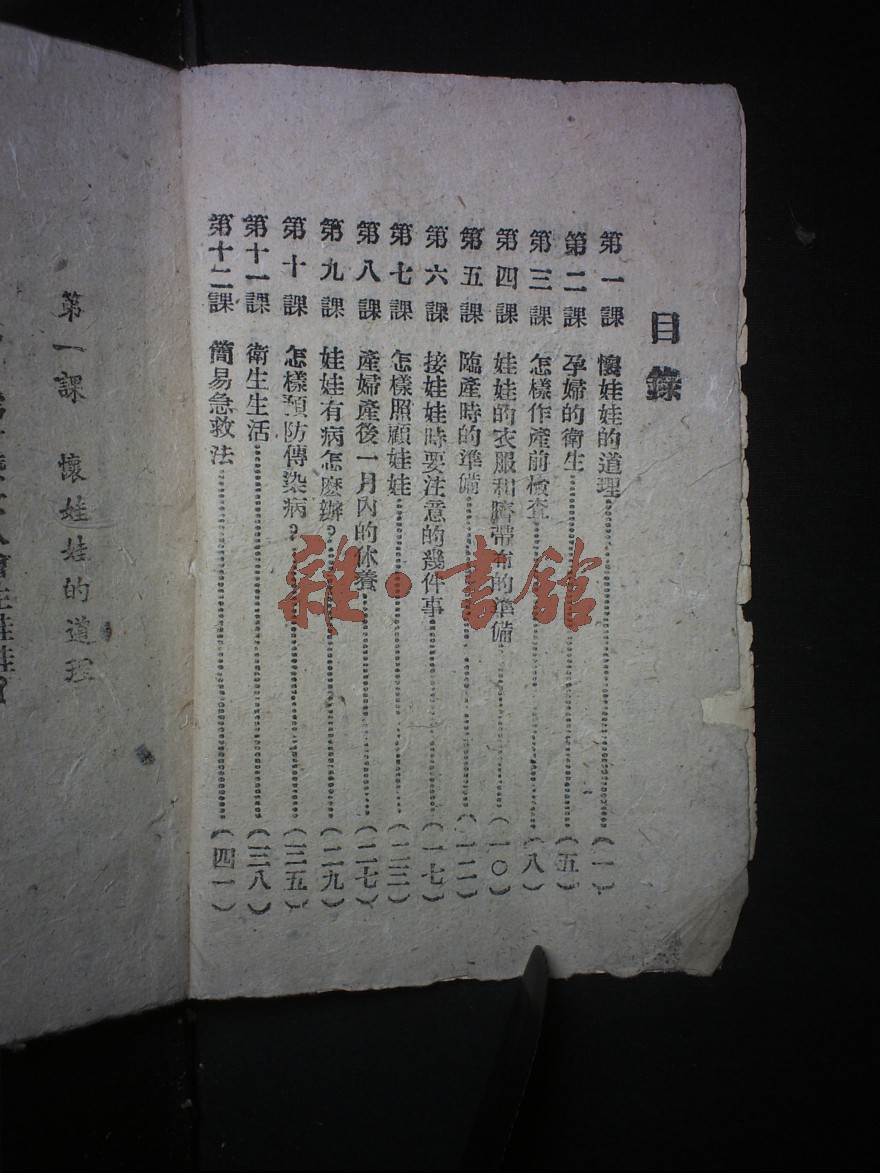 目錄
第一課 懷娃娃的道理………(一)
第二課 孕婦的衛生………(五)
第三課 怎樣作產前檢查………(八)
第四課 娃娃的衣服和臍帶布的準備………(一〇)
第五課 臨產時的準備………(一二)
第六課 接娃娃時要注意的幾件事………(一七)
第七課 怎樣照顧娃娃………(二三)
第八課 產婦產後一月內的休養………(二七)
第九課 娃娃有病怎麽辦?………(二九)
第十課 怎樣預防傳染病?………(三五)
第十一課 衛生生活………(三八)
第十二課 簡易急救法………(四一)
第一課 懷娃娃的道理
雜·書館